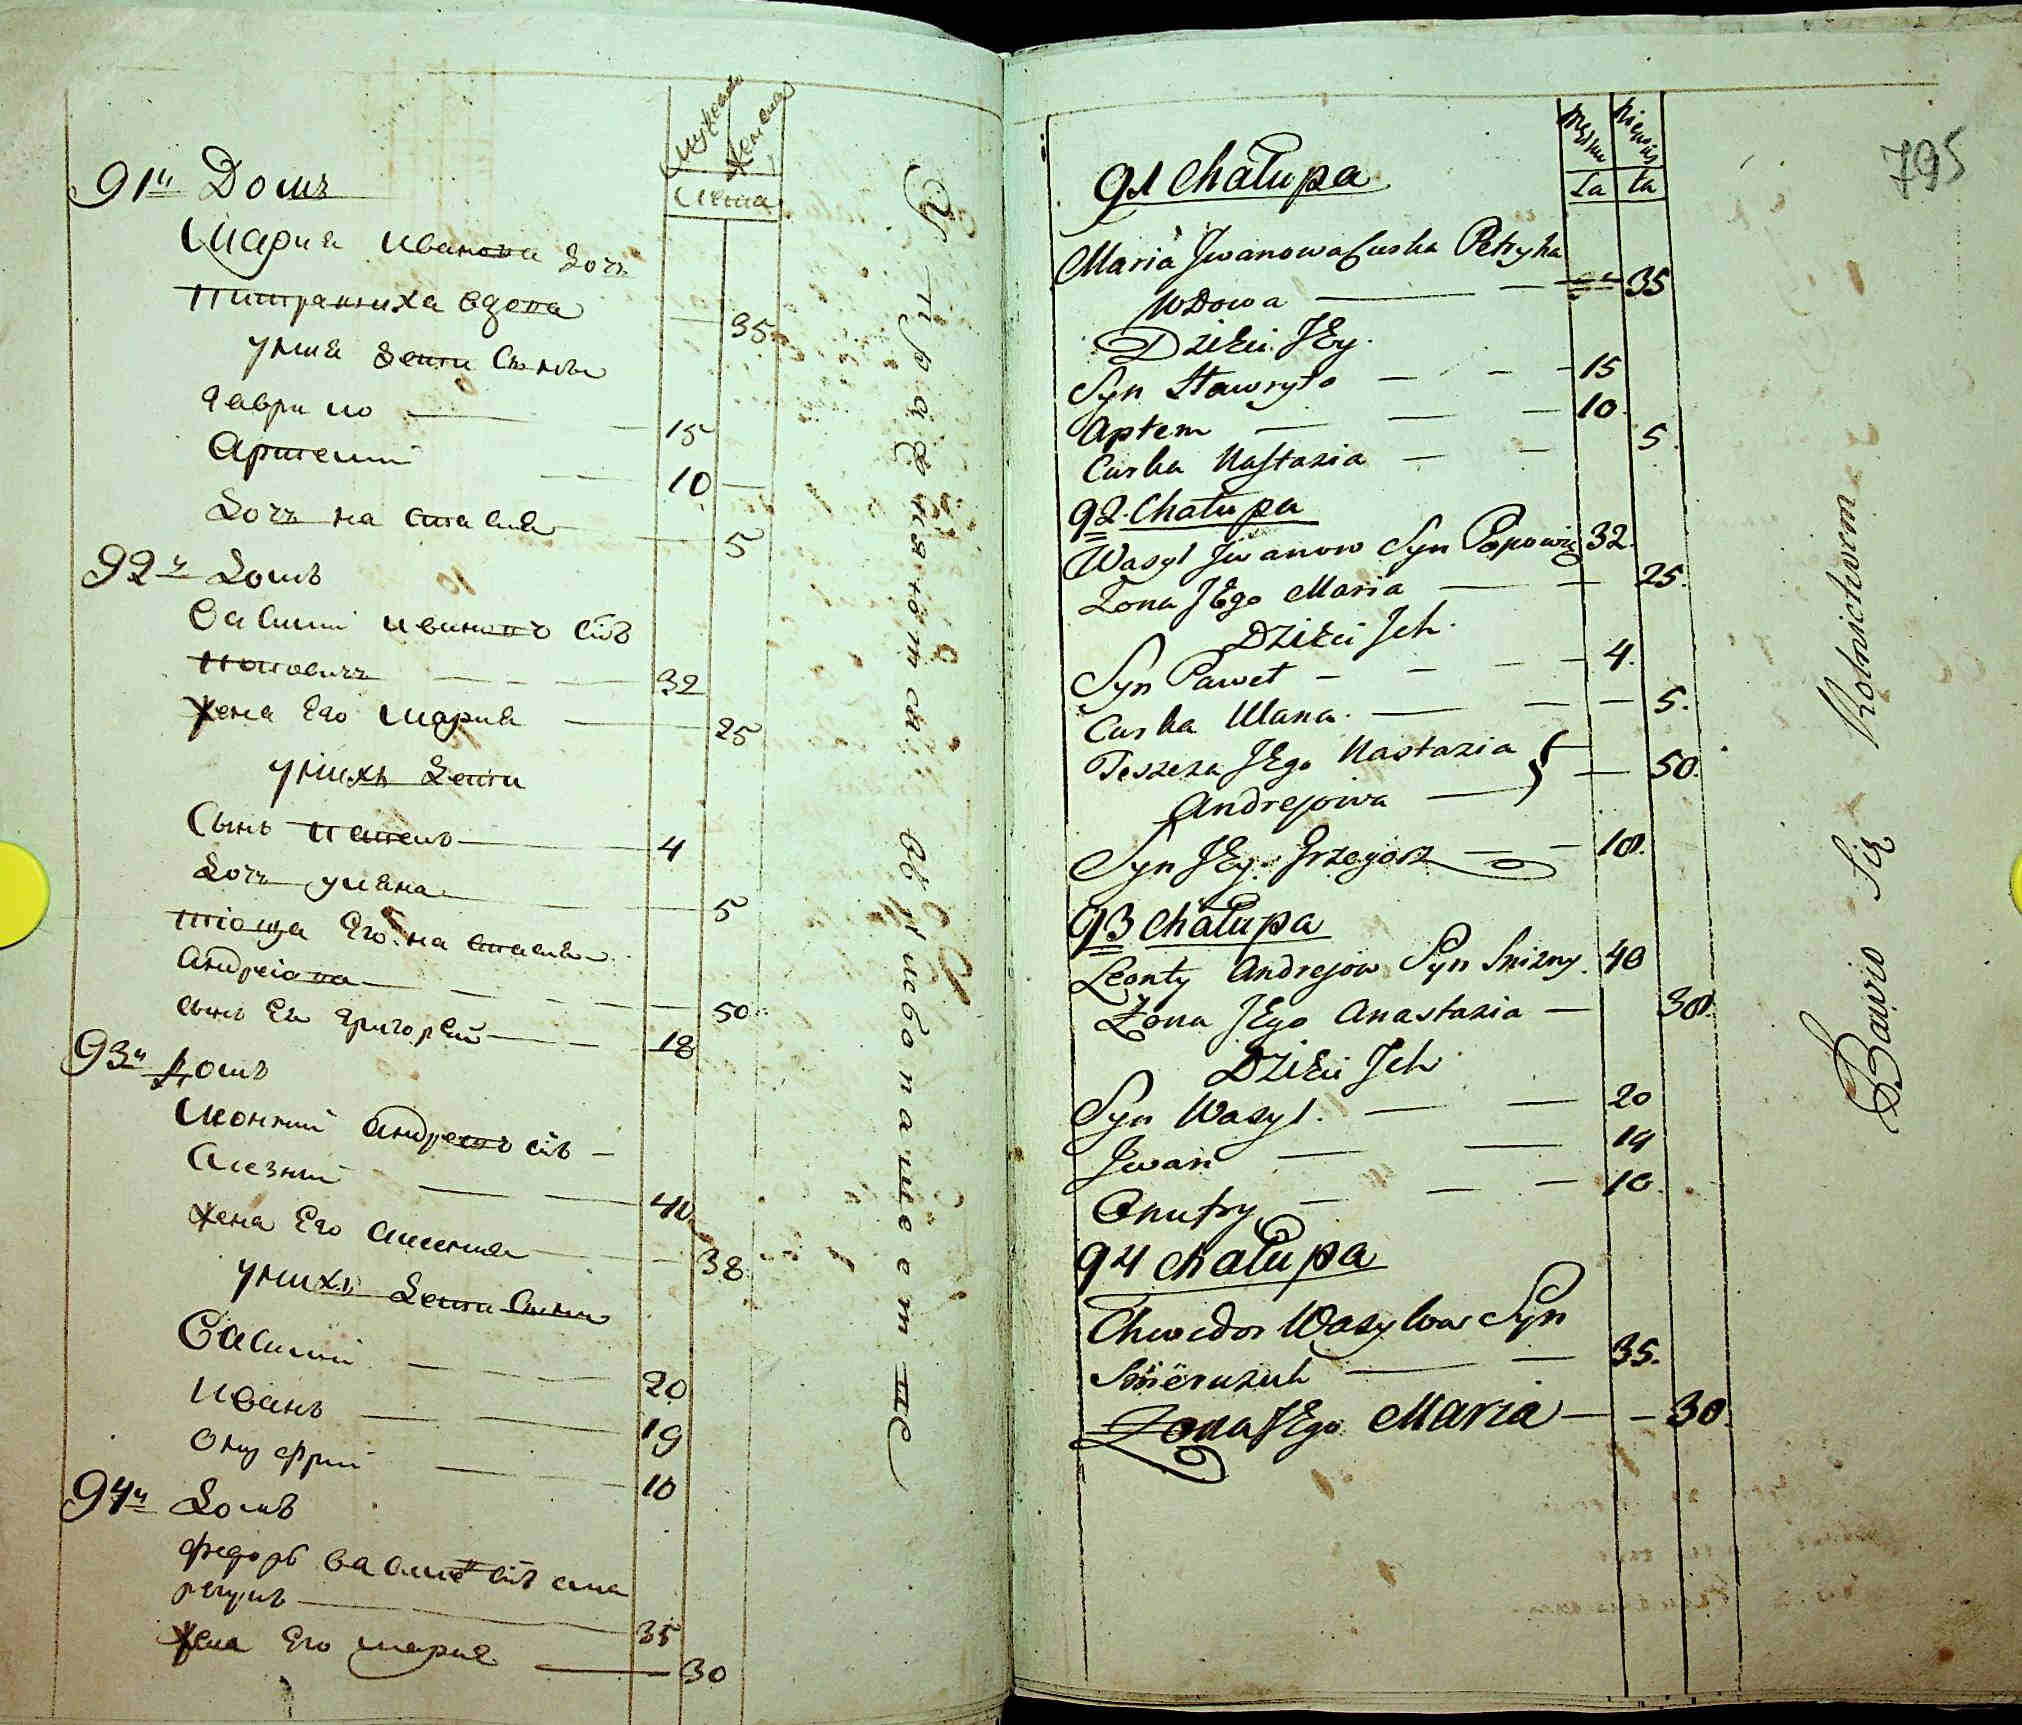 Мужеска
Женска
Лета
91й Домъ
Мария иванова дочъ
питраниха вдова
35
у нея дети сыны
Гаврило
15
Артемий
10
дочъ настасия
5
92й домъ
Василий ивановъ сынъ
поповичъ
32
жена Его мария
25
у нихъ дети
Сынъ павелъ
4
дочъ уляна
5
тіоща Его настасия
Андреіова
50
сынъ Ея григорей
18
93й домъ
Леонтий андреевъ сынъ
40
жена Его
38
у нихъ дети сыны
Василий
20
иванъ
19
онуфрий
10
94й домъ
федоръ сынъ
35
жена Его мария
30
упражняются
хлебопашеством
795
Męzsku
La ta
91 Chałupa
Maria Jwanowa Curka Petrycha
Wdowa 35
Dzieci JEy
Syn Hawryło 15
Artem 10
Curka Nastazia 5
92 Chałupa
Wasyl Jwanow Syn Popowicz 32
Zona JEgo Maria 25
Dzieci Jch
Syn Paweł 4
Curka Ulana 5
Teszcza JEgo Nastazia
Andrejowa 50
Syn JEy Grzegorz 18
93 Chałupa
Leonty Andrejow Syn Snizny 40
Zona JEgo Anastazia 38
Dzieci Jch
Syn Wasyl 20
Jwan 19
Onufry 10
94 Chałupa
Chwedor Wasylow Syn
35
Zona JEgo Maria 30
Bawio Się Rolnictwem